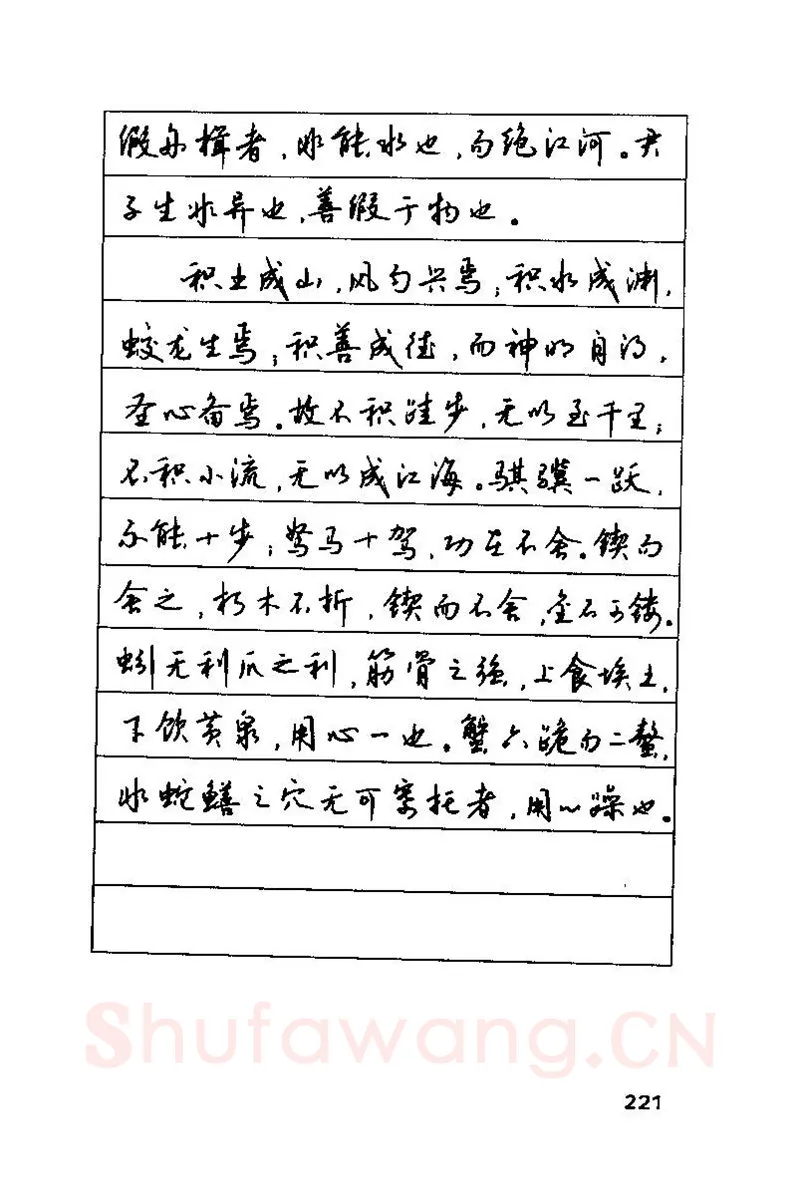 假舟楫者，非能水也，而绝江河。君
子生非异也，善假于物也。
积土成山，风雨兴焉；积水成渊，
蛟龙生焉；积善成德，而神明自得，
圣心备焉。故不积跬步，无以至千里；
不积小流，无以成江海。骐骥一跃，
不能十步；驽马十驾，功在不舍。锲而
舍之，朽木不折，锲而不舍，金石可镂。
蚓无利爪之利，筋骨之强，上食埃土，
下饮黄泉，用心一也。蟹六跪而二螯，
非蛇鳝之穴无可寄托者，用心躁也。
Shufawang.CN
221